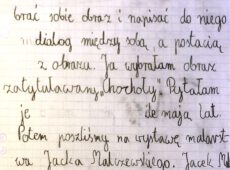 brać sobie obraz i napisać do niego
dialog między sobą, a postacią
z obrazu. Ja wybrałam obraz
zatytułowany „Chochoły". Pytałam
je ile maja lat.
Potem poszliśmy na wystawę malarst
wa Jacka Malczewskiego. Jacek M